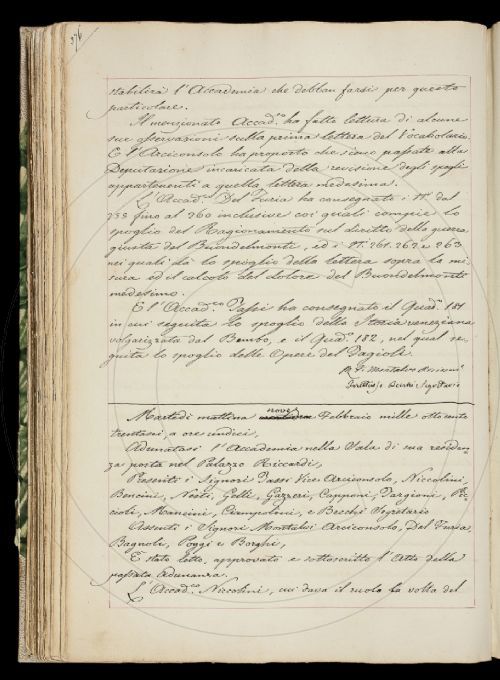 376
stabilirà l'Accademia che debban farsi per questo
particolare.
Il menzionato Accad.co ha fatto lettura di alcune
sue osservazioni sulla prima lettera del Vocabolario.
E l'Arciconsolo ha proposto che siano passate alla
Deputazione incaricata della revisione degli spogli
appartenenti a quella lettera medesima.
L'Accad.co Del Furia ha consegnato i N.i dal
255 fino al 260 inclusive coi quali compie lo
spoglio del Ragionamento sul diritto della guerra
giusta del Buondelmonte, ed i N.i 261. 262 e 263
nei quali dà lo spoglio della lettera sopra la mi-
sura ed il calcolo del dolore del Buondelmonte
medesimo.
E l'Accad.co Tassi ha consegnato il Quad.o 181
in cui seguita lo spoglio della Storia veneziana
volgarizzata dal Bembo, e il Quad.o 182, nel qual se-
guita lo spoglio delle Opere del Fagioli.
Montalvi Arcicons.o
Fruttuoso Becchi Segretario
Martedì mattina nove Febbraio mille otto cento
trentasei, a ore undici,
Adunatasi l'Accademia nella Sala di sua residen-
za posta nel Palazzo Riccardi,
Presenti i Signori Tassi Vice Arciconsolo, Niccolini,
Bencini, Nesti, Gelli, Gazzeri, Capponi, Targioni, Pic-
cioli, Mancini, Ciampolini, e Becchi Segretario
Assenti i Signori Montalvi Arciconsolo, Del Furia,
Bagnoli, Poggi e Borghi,
È stato letto, approvato e sottoscritto l'Atto della
passata Adunanza.
L'Accad.co Niccolini, cui dava il ruolo la volta del